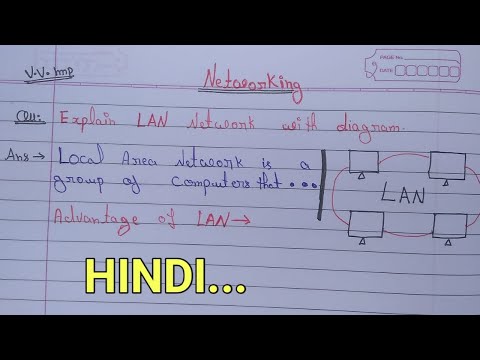 PAGE No.
DATE
V.V. Imp
Networking
Qu: Explain LAN Network with diagram.
Ans → Local Area Network is a
group of Computers that ...
LAN
Advantage of LAN →
HINDI...